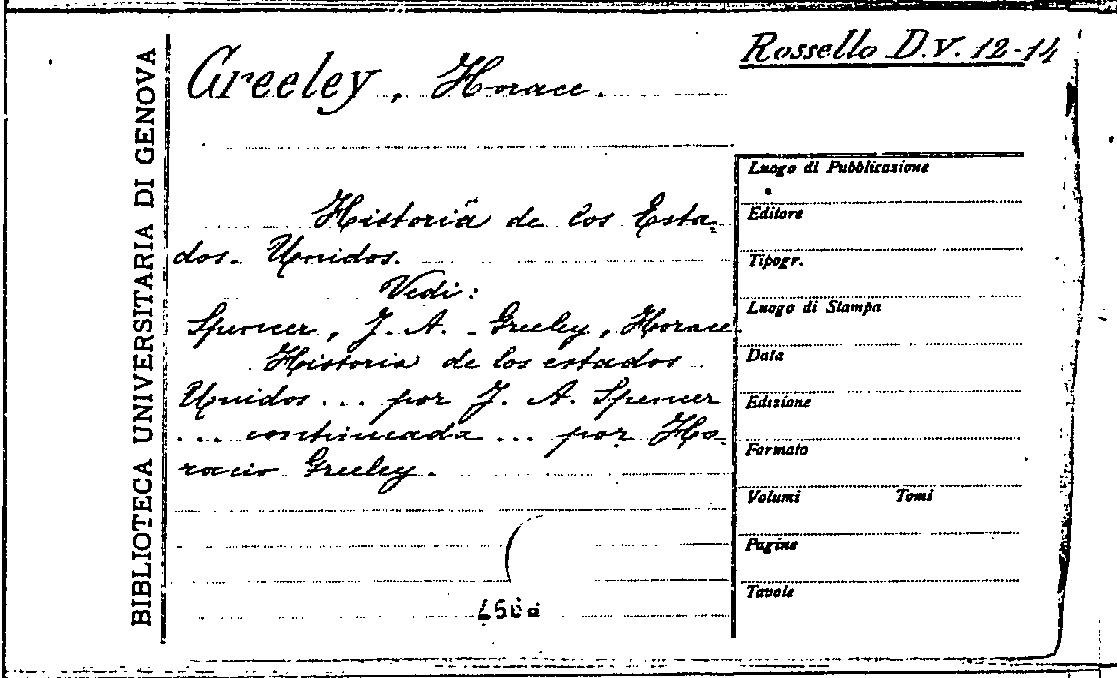 Rossello D.V. 12-14
Greeley, Horace.
BIBLIOTECA UNIVERSITARIA DI GENOVA
Historia de los Esta-
dos. Unidos.
Vedi:
Spencer, J. A. - Greeley, Horace.
Historia de los estados
Unidos... por J. A. Spencer
... continuada... por Ho-
racio Greeley.
Luogo di Pubblicazione
Editore
Tipogr.
Luogo di Stampa
Data
Edizione
Formato
Volumi Tomi
Pagine
Tavole